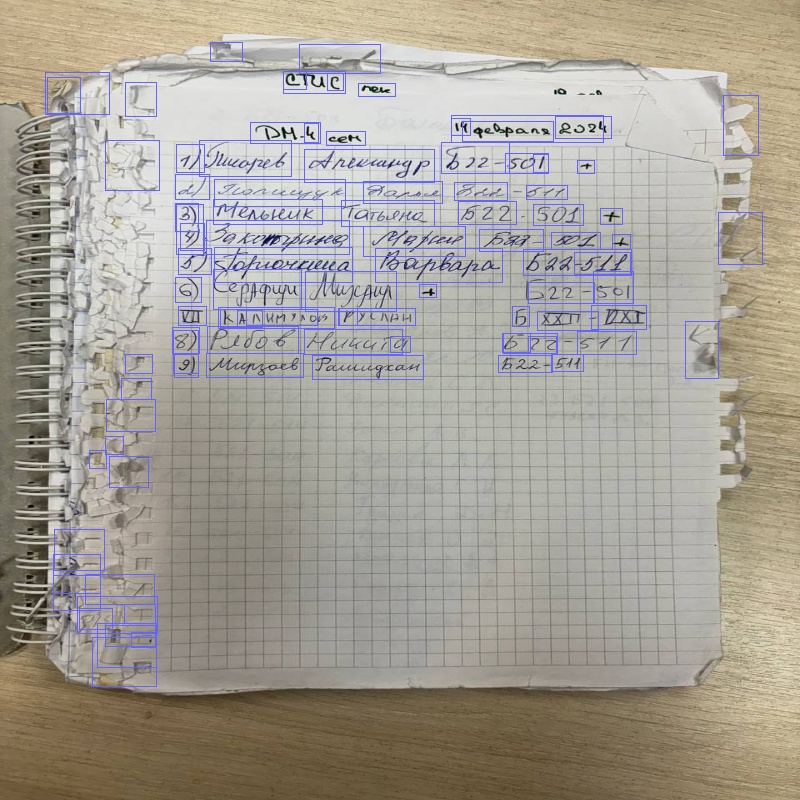 СТИС лек
ДМ-4 сем 14 февраля 2024
1) Писарев Александр Б22-501 +
2) Полищук Дарья Б22-511
3) Мельник Татьяна Б22-501 +
4) Мария Б22-501 +
5) Горлочкина Варвара Б22-511
6) Серафим Михаил + Б22-501
VII КАЛИМУЛОВ РУСЛАН Б XXII - DXI
8) Рябов Никита Б22-511
9) Мирзоев Рашидхан Б22-511